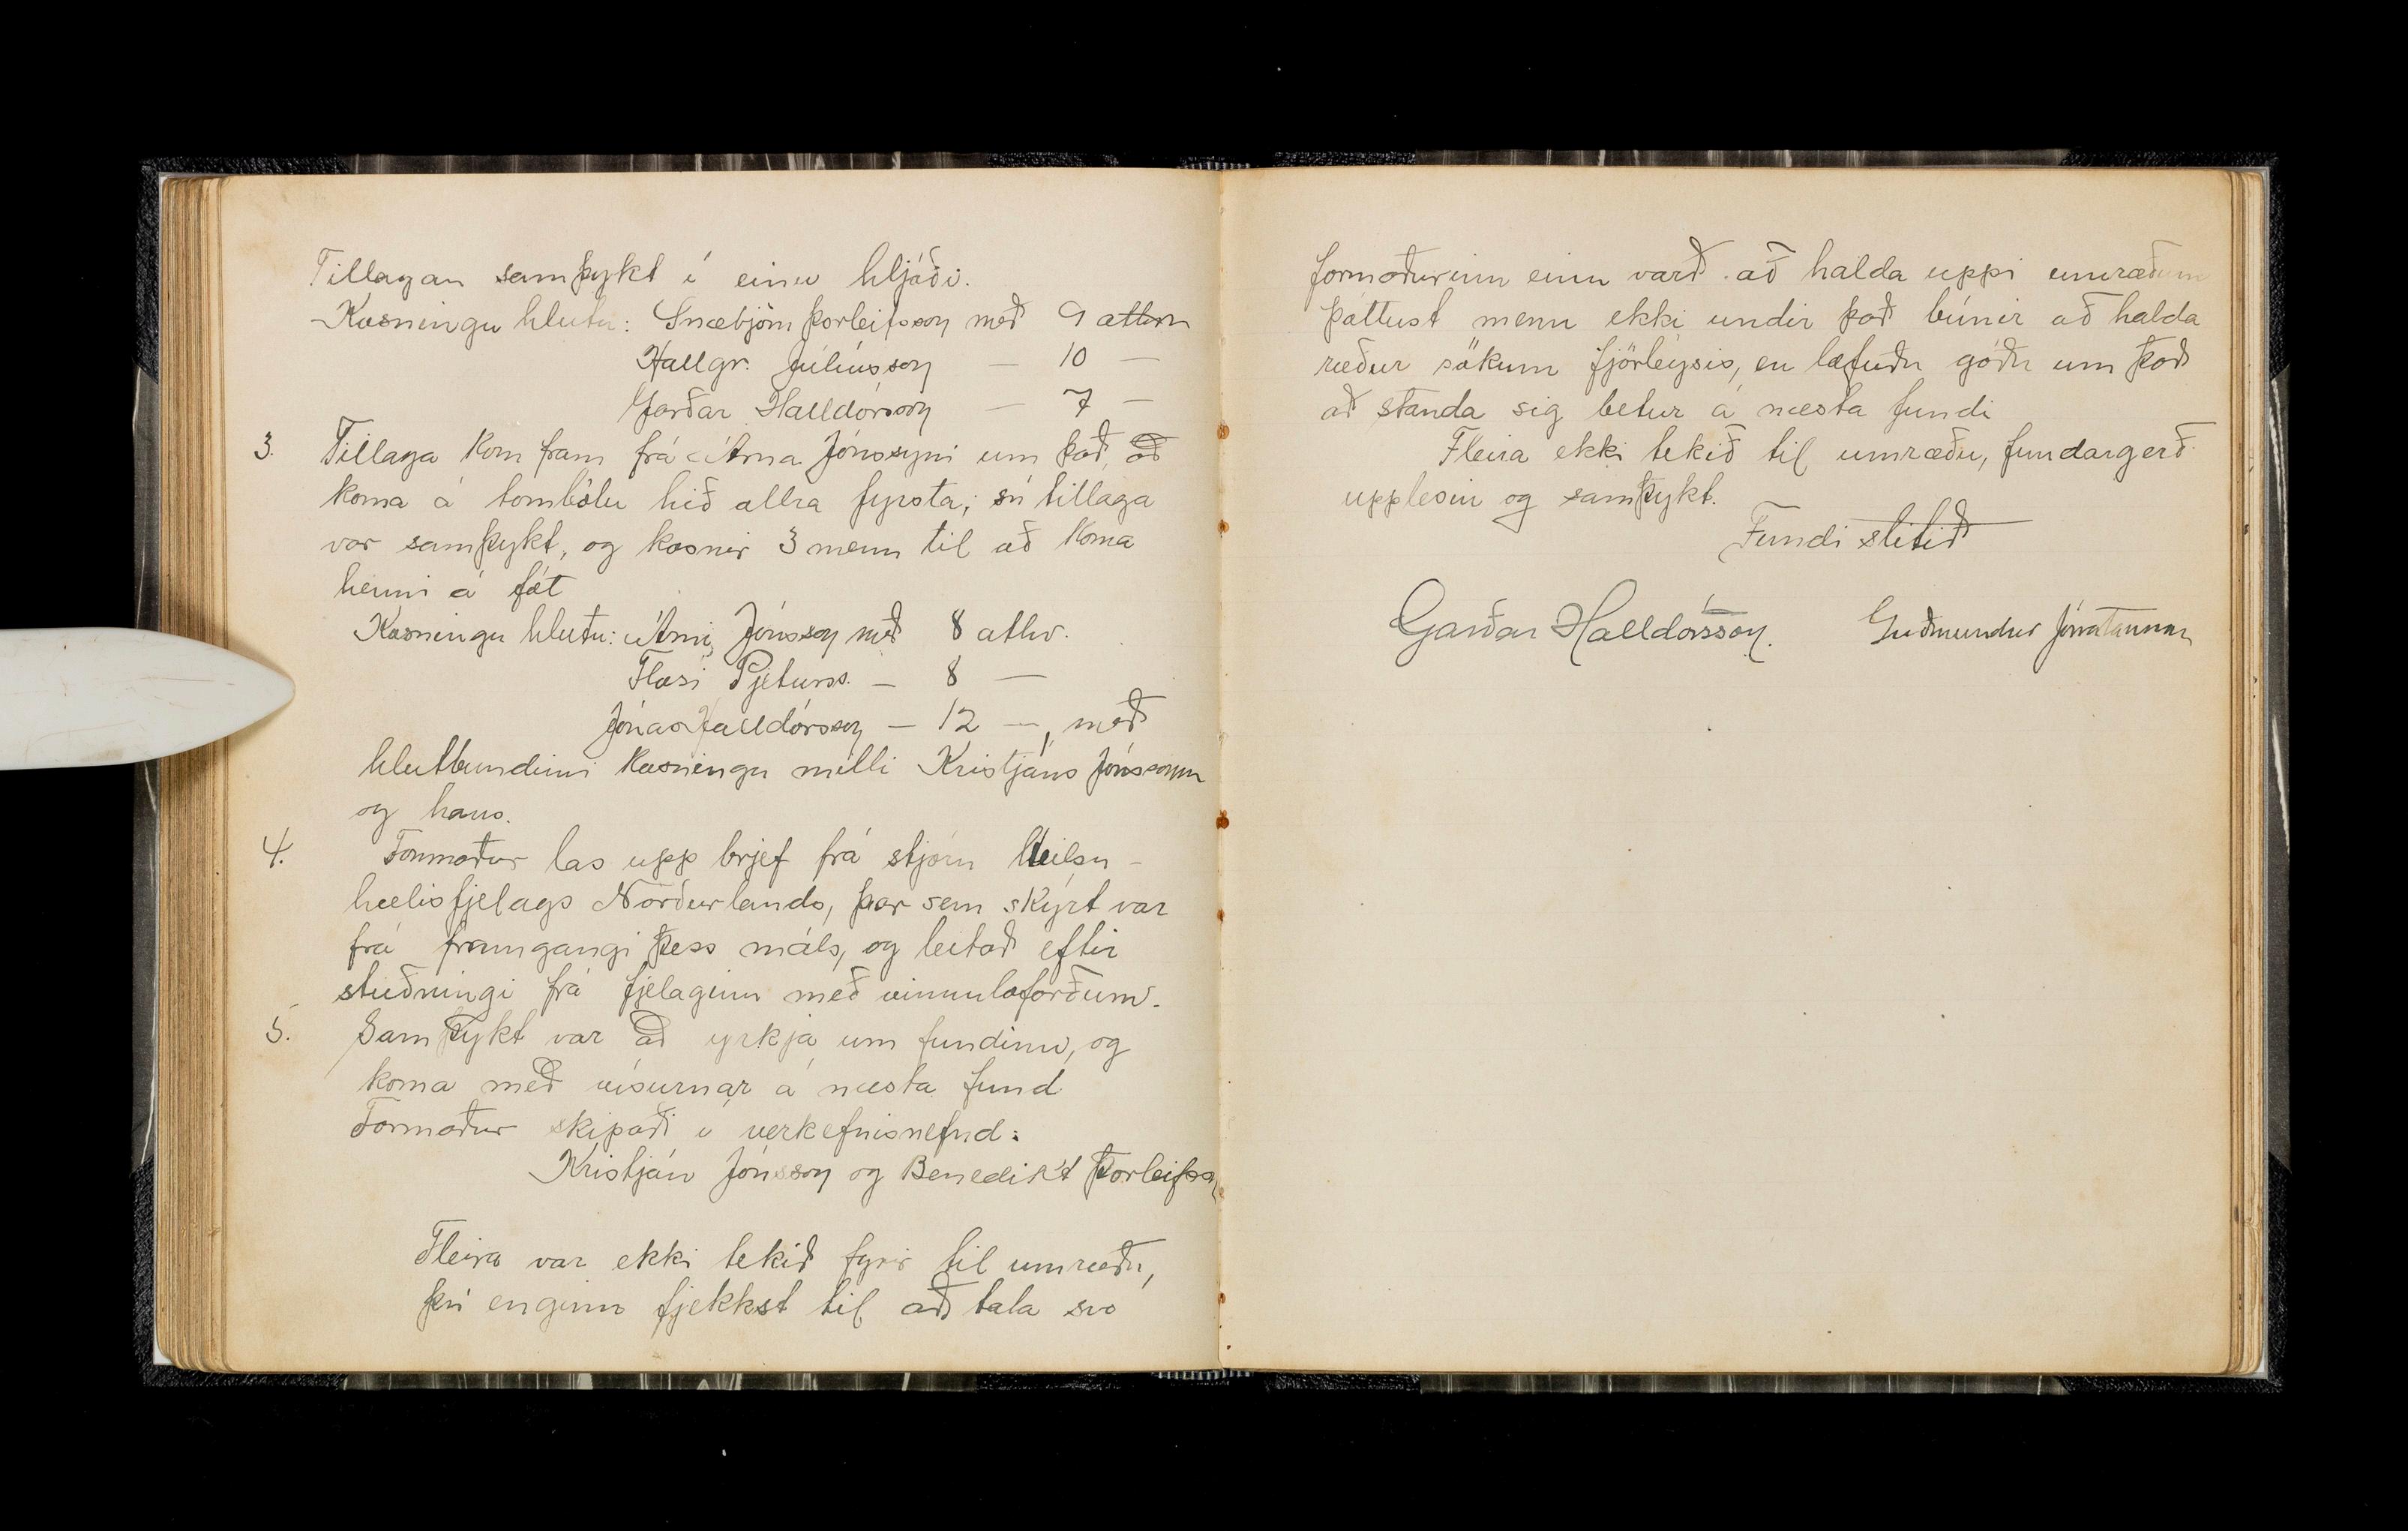 Tillagan samþykt í einu hljóði.
Kosningu hlutu: Snæbjörn Þorleifsson með 9 atkv
Hallgr. Júlíusson — 10 —
Garðar Halldórsson — 7 —
3. Tillaga kom fram frá Árna Jónssyni um það, að
koma á tombólu hið allra fyrsta; sú tillaga
var samþykt, og kosnir 3 menn til að koma
henni á fót
Kosningu hlutu: Árni Jónsson með 8 atkv.
Flosi Pjeturss. — 8 —
Jónas Halldórsson — 12 —, með
hlutbundinni kosningu milli Kristjáns Jónssonar
og hans.
4. Formaður las upp brjef frá stjórn Heilsu-
hælisfjelags Norðurlands, þar sem skýrt var
frá framgangi þess máls, og leitað eftir
stuðningi frá fjelaginu með vinnuloforðum.
5. Samþykt var að yrkja um fundinn, og
koma með vísurnar á næsta fund
Formaður skipaði í verkefnisnefnd:
Kristján Jónsson og Benedikt Þorleifsson
Fleira var ekki tekið fyrir til umræðu,
því enginn fjekkst til að tala svo
formaðurinn einn varð að halda uppi umræðum
þóttust menn ekki undir það búnir að halda
ræður sökum fjörleysis, en lofuðu góðu um það
að standa sig betur á næsta fundi
Fleira ekki tekið til umræðu, fundargerð
upplesin og samþykt.
Fundi slitið
Garðar Halldórsson. Guðmundur Jónatansson